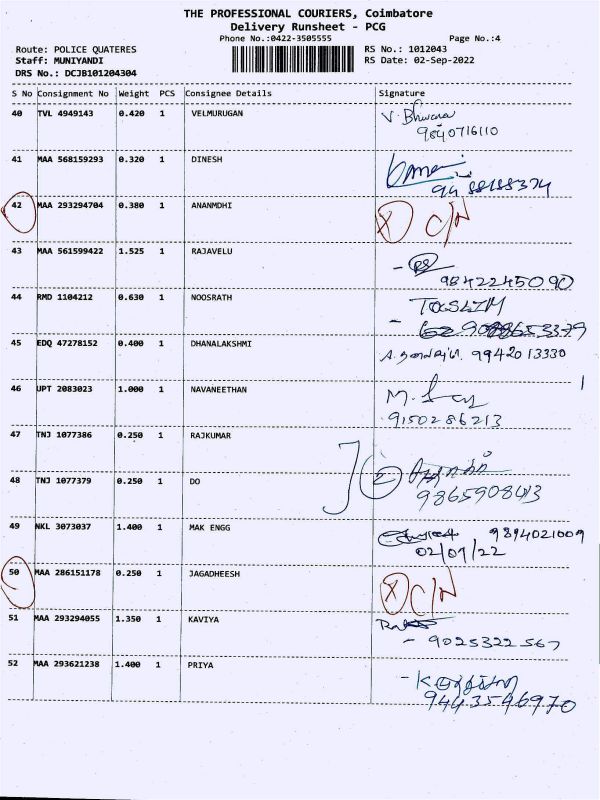 THE PROFESSIONAL COURIERS, Coimbatore
Delivery Runsheet - PCG
Phone No.:0422-3505555 Page No.:4
Route: POLICE QUATERES RS No.: 1012043
Staff: MUNIYANDI RS Date: 02-Sep-2022
DRS No.: DCJB101204304
S No Consignment No Weight PCS Consignee Details Signature
40 TVL 4949143 0.420 1 VELMURUGAN V. Bhuvana
9840716110
41 MAA 568159293 0.320 1 DINESH
94 88188374
42 MAA 293294704 0.380 1 ANANMDHI X C/N
43 MAA 561599422 1.525 1 RAJAVELU
9842245090
44 RMD 1104212 0.630 1 NOOSRATH TASLIM
45 EDQ 47278152 0.400 1 DHANALAKSHMI 9942013330
46 UPT 2083023 1.000 1 NAVANEETHAN
9150286213
47 TNJ 1077386 0.250 1 RAJKUMAR
48 TNJ 1077379 0.250 1 DO 2
9865908413
49 NKL 3073037 1.400 1 MAK ENGG 9894021009
02/09/22
50 MAA 286151178 0.250 1 JAGADHEESH X C/N
51 MAA 293294055 1.350 1 KAVIYA
- 9025322567
52 MAA 293621238 1.400 1 PRIYA
9443546970